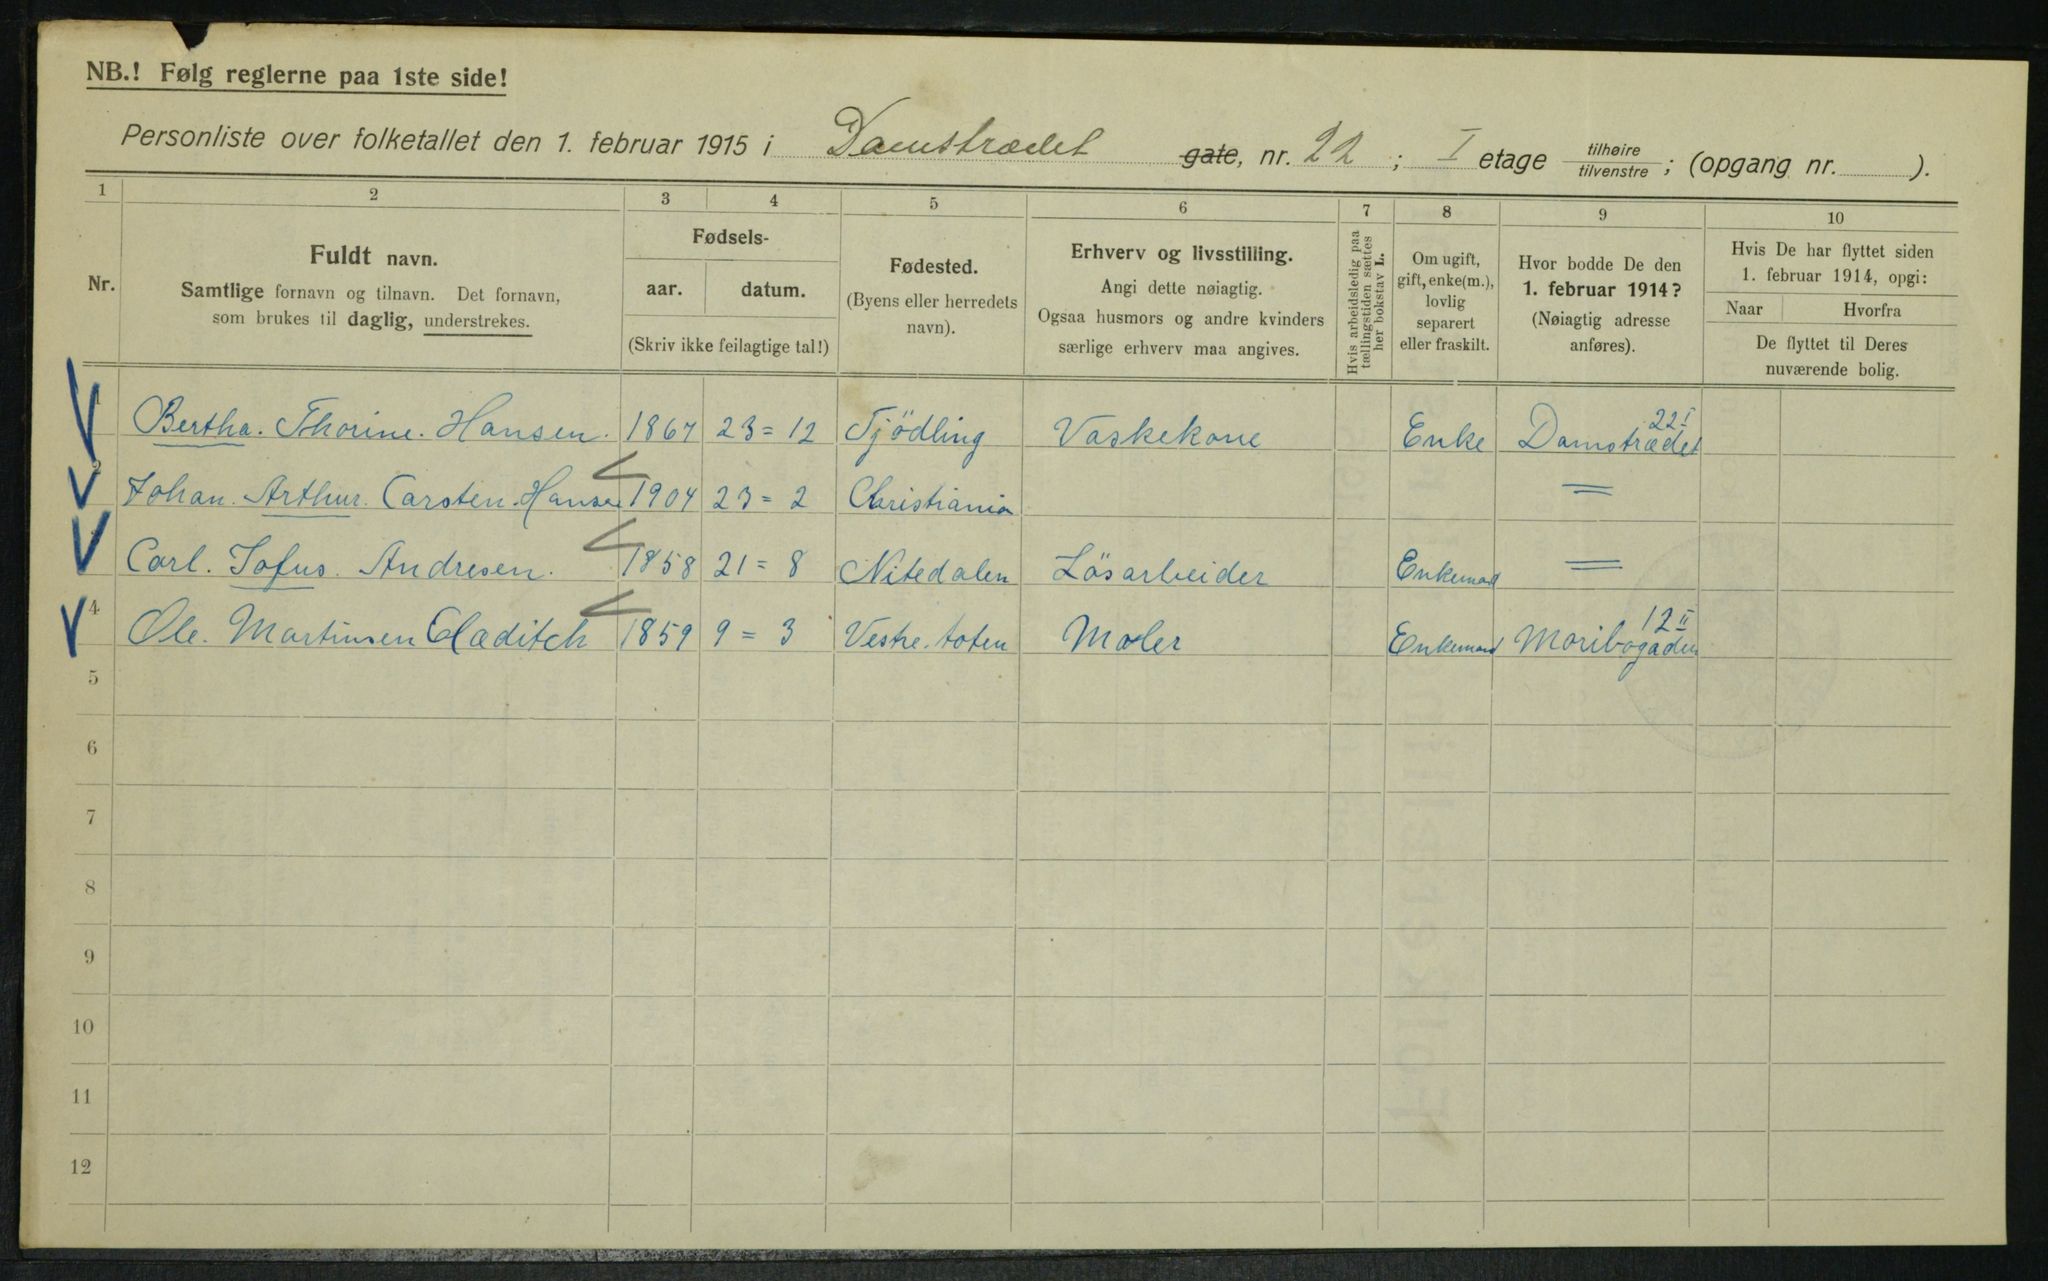 NB.! Følg reglerne paa 1ste side!
Personliste over folketallet den 1. februar 1915 i Damstrædet gate, nr. 22; I etage tilhøire tilvenstre; (opgang nr. ).
1 2 3 4 5 6 7 8 9 10
Nr.
Fuldt navn.
Samtlige fornavn og tilnavn. Det fornavn,
som brukes til daglig, understrekes.
Fødsels-
aar. datum.
(Skriv ikke feilagtige tal!)
Fødested.
(Byens eller herredets
navn).
Erhverv og livsstilling.
Angi dette nøiagtig.
Ogsaa husmors og andre kvinders
særlige erhverv maa angives.
Hvis arbeidsledig paa
tællingstiden sættes
her bokstav L.
Om ugift,
gift, enke(m.),
lovlig
separert
eller fraskilt.
Hvor bodde De den
1. februar 1914?
(Nøiagtig adresse
anføres).
Hvis De har flyttet siden
1. februar 1914, opgi:
Naar Hvorfra
De flyttet til Deres
nuværende bolig.
1 Bertha. Thorine. Hansen. 1867 23=12 Tjödling Vaskekone Enke Damstrædet 22 I
2 Johan. Arthur. Carsten. Hansen 1904 23=2 Christiania =
Carl. Jofus. Andresen. 1858 21=8 Nitedalen Lösarbeider Enkemand =
4 Ole. Martinsen 1859 9=3 Vestre. toten Maler Enkemand Maribogaden 12 II
5
6
7
8
9
10
11
12